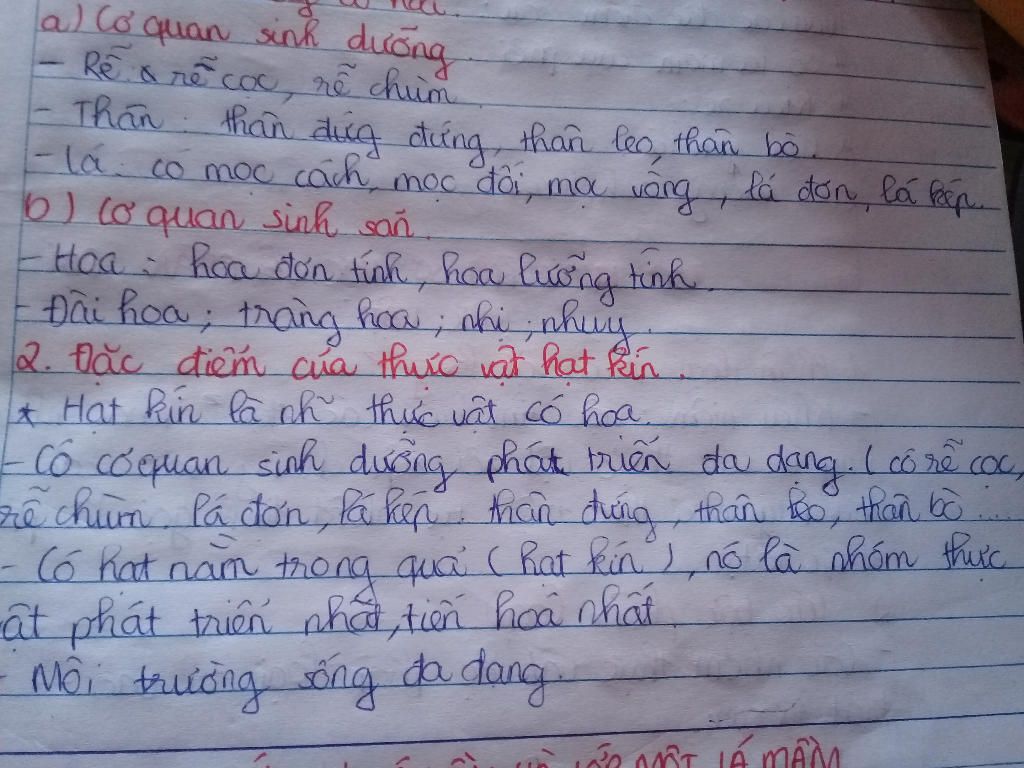 a) Cơ quan sinh dưỡng
- Rễ rễ cọc, rễ chùm
- Thân: thân đứg đứng, thân leo, thân bò.
- Lá: có mọc cách, mọc đối, mọc vòng, lá đơn, lá kép.
b) Cơ quan sinh sản
- Hoa: hoa đơn tính, hoa lưỡng tính.
- Đài hoa; tràng hoa; nhị; nhuỵ.
2. Đặc điểm của thực vật hạt kín.
* Hạt kín là nhữ thực vật có hoa.
- Có cơ quan sinh dưỡng phát triển đa dạng. (có rễ cọc,
rễ chùm. lá đơn, lá kép. thân đứng, thân leo, thân bò...
- Có hạt nằm trong quả (hạt kín), nó là nhóm thực
ật phát triển nhất, tiến hoá nhất
- Môi trường sống đa dạng.
LỚP MỘT LÁ MẦM